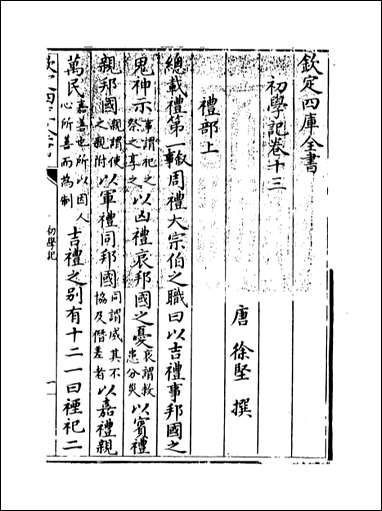 欽定四庫全書
初學記卷十三
唐 徐堅 撰
禮部上
總載禮第一敘事周禮大宗伯之職曰以吉禮事邦國之
鬼神示事謂祀之祭之享之以凶禮哀邦國之憂哀謂救患分災以賓禮
親邦國親謂使之親附以軍禮同邦國同謂威其不協及僭差者以嘉禮親
萬民嘉善也所以因人心所善而為制吉禮之别有十二一曰禋祀二
初學記